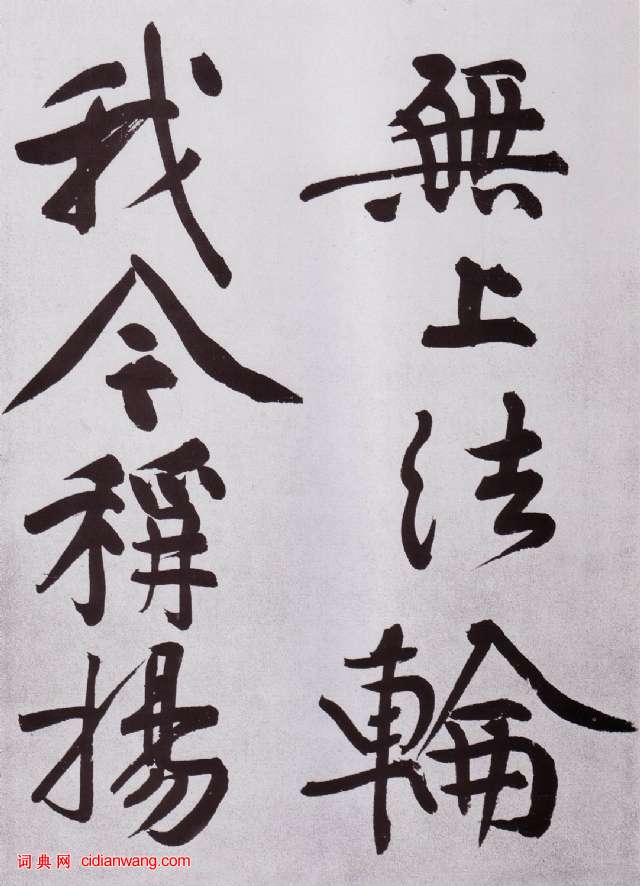 無上法輪
我今稱揚
词典网 cidianwang.com